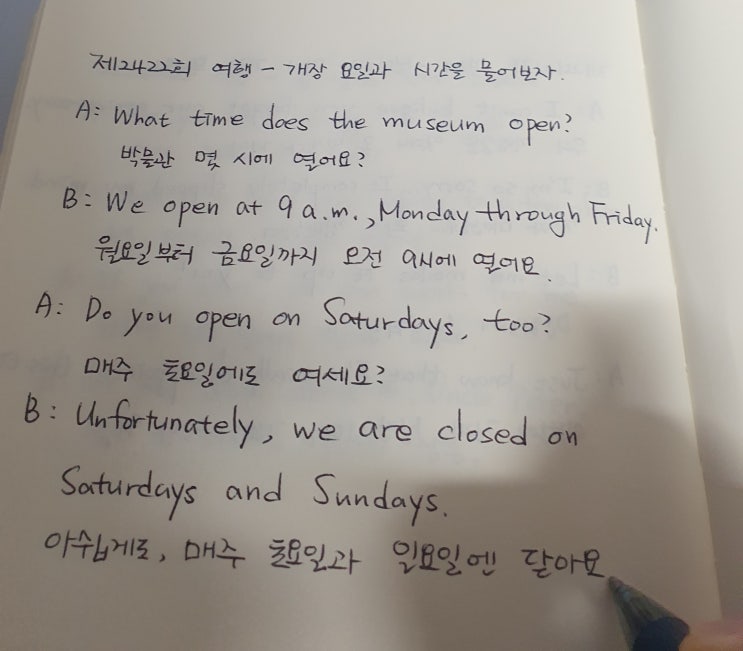 제2422회 여행 - 개장 요일과 시간을 물어보자.
A: What time does the museum open?
박물관 몇 시에 열어요?
B: We open at 9 a.m., Monday through Friday.
월요일부터 금요일까지 오전 9시에 열어요.
A: Do you open on Saturdays, too?
매주 토요일에도 여세요?
B: Unfortunately, we are closed on
Saturdays and Sundays.
아쉽게도, 매주 토요일과 일요일엔 닫아요